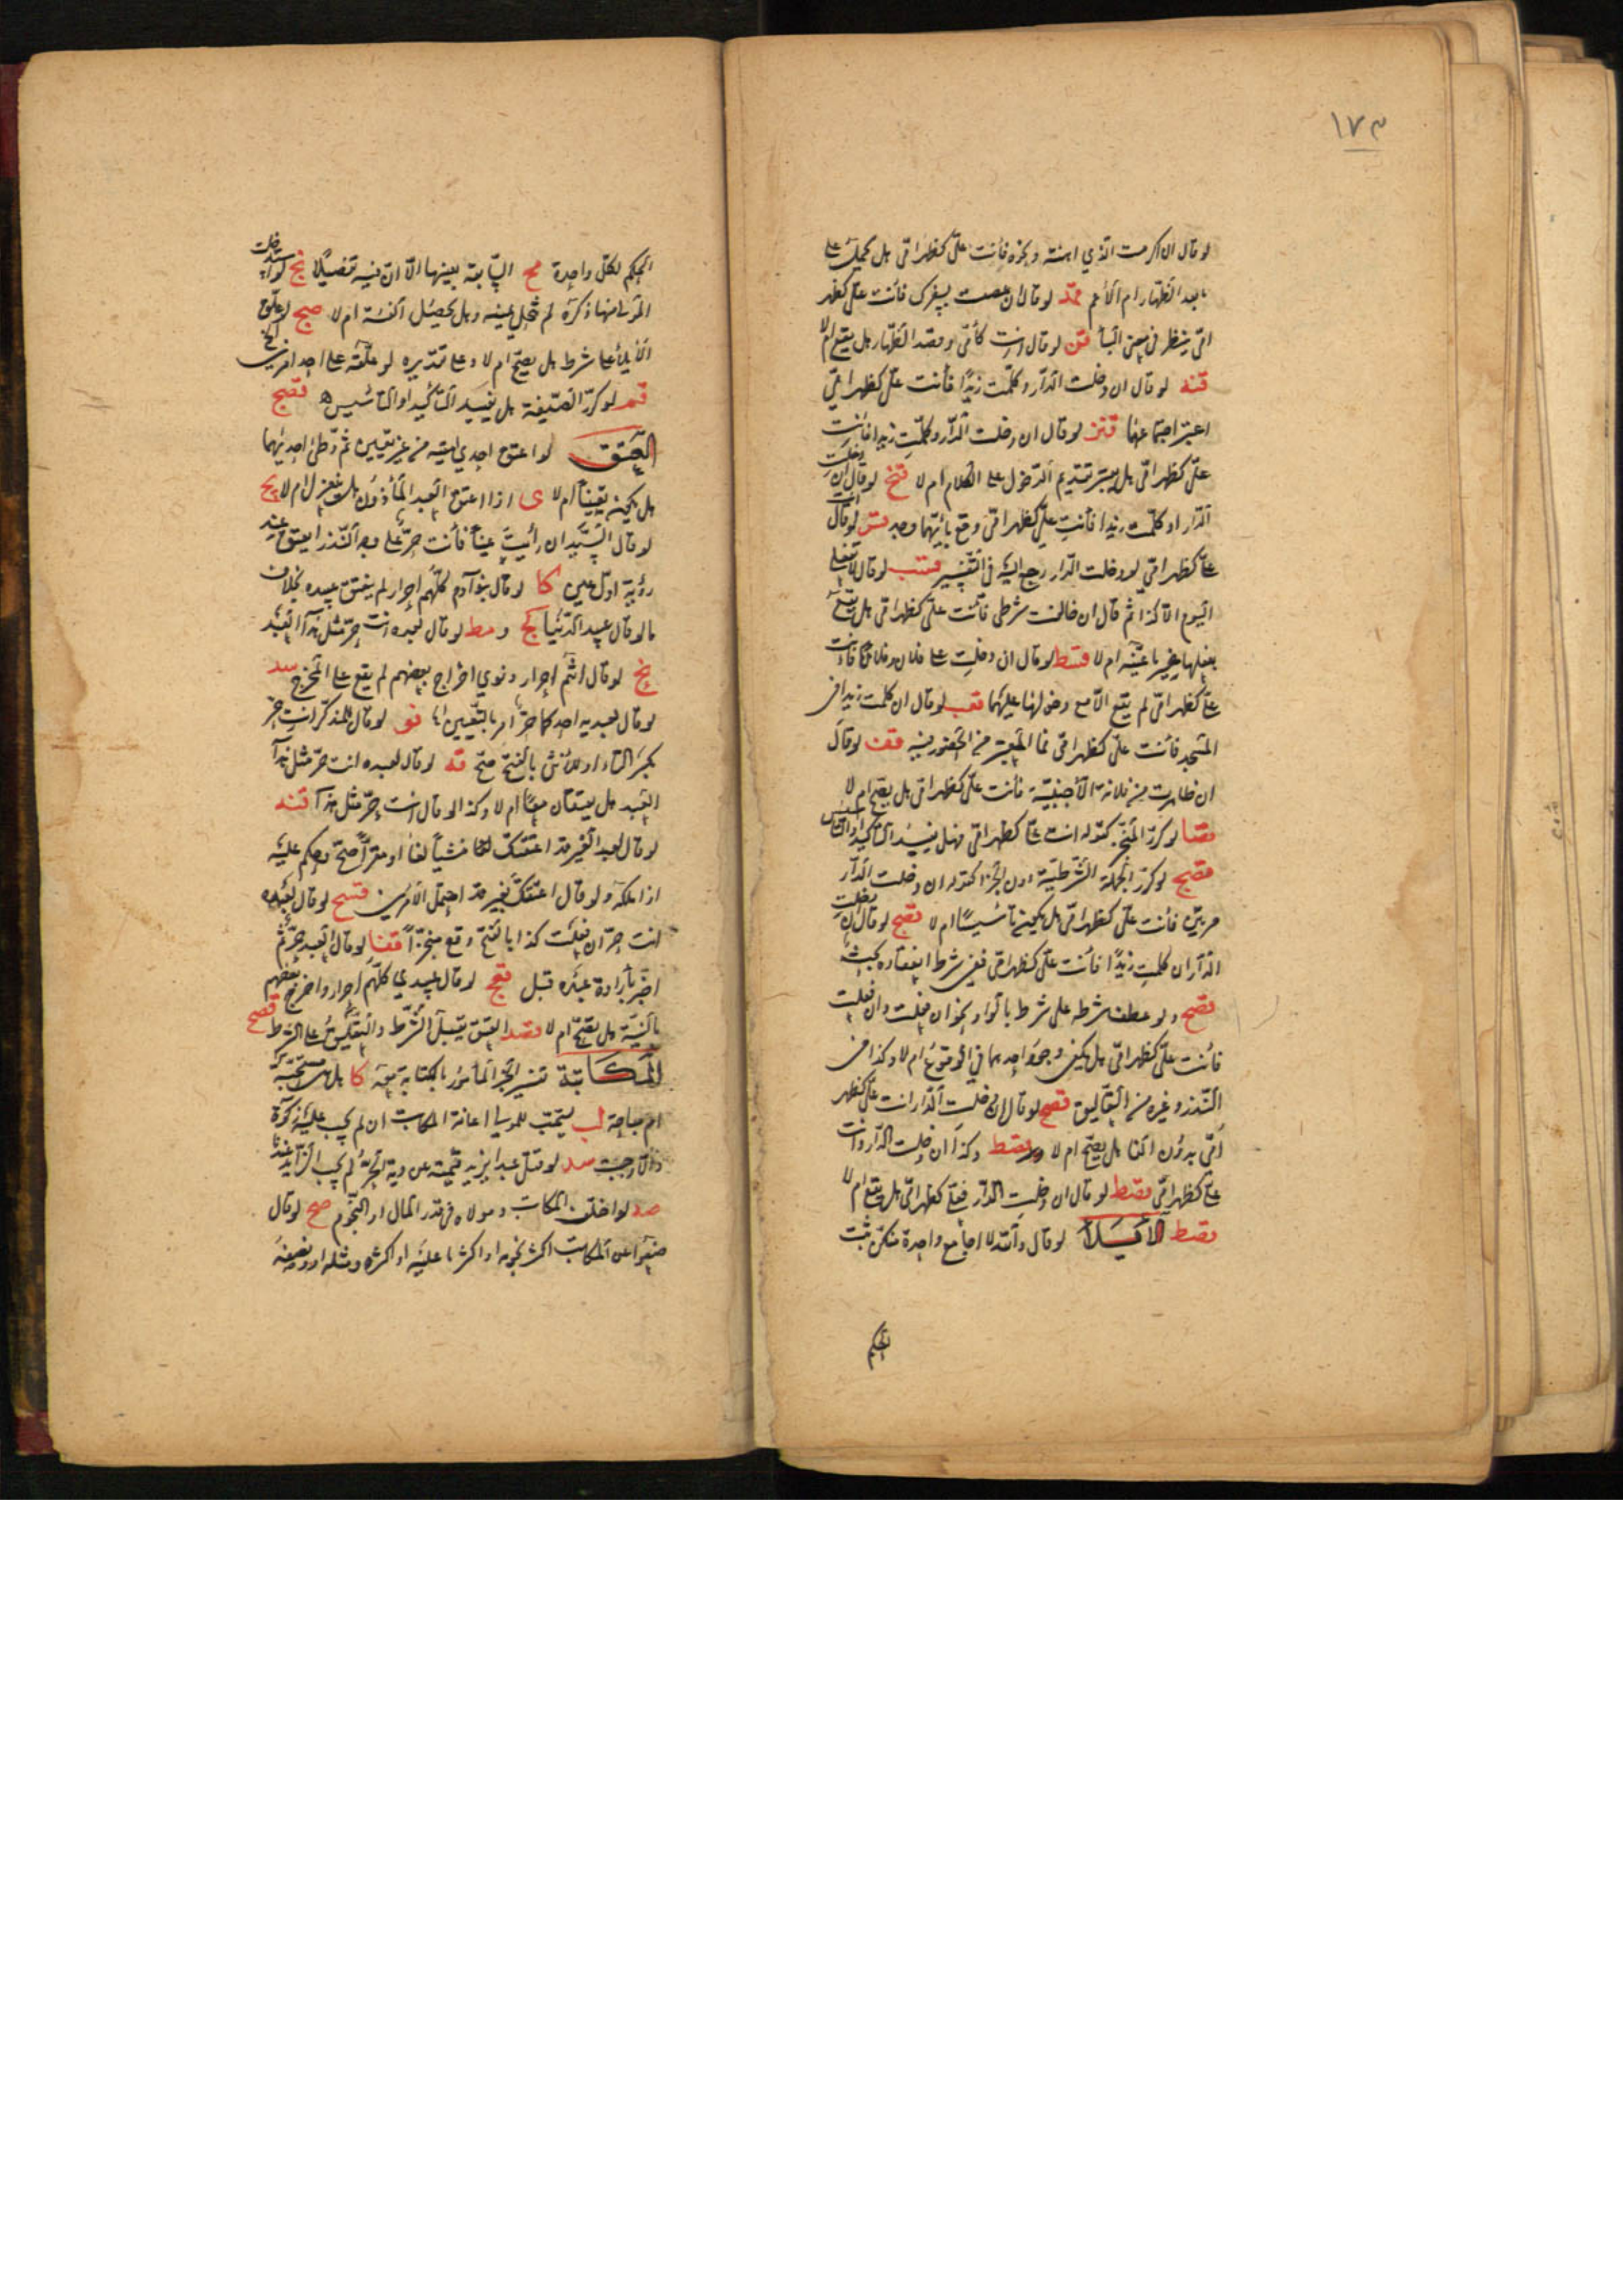 ١٧٣
لو قال ان اكرمت الذي اهنته ونحوه فانت علىّ كظهر امّى هل يحمل على
ما بعد الظهار ام الأعم لو قال ان عصت بسفرك فانت علىّ كظهر
امّى ينظر فى معنى البأ قن لو قال انت كأمّى وقصد الظهار هل يقع ام لا
قنه لو قال ان دخلت الدّار وكلّمت زيدًا فأنت علىّ كظهر امّى
اعتبر اجتماعهما قنز لو قال ان دخلت الدّار وكلّمت زيدا فانت
علىّ كظهر امّى هل يعتبر تقديم الدّخول على الكلام ام لا قنح لو قال ان دخلت
الدّار او كلّمت زيدا فأنت علىّ كظهر امّى وقع بأيّهما وجد قس لو قال انت
علىّ كظهر امّى لو دخلت الدّار رجع اليه فى التفسير قسب لو قال لا تفعلى
اليوم الا كذا ثم قال ان خالفت شرطى فأنت علىّ كظهر امّى هل يقع
بفعلها غير ما عيّنه ام لا قسط لو قال ان دخلت على فلان وفلان فانت
علىّ كظهر امّى لم يقع الّا مع دخولها عليهما قعب لو قال ان كلمت زيدا فى
المسجد فأنت علىّ كظهر امّى فما المعتبر من الحضور فيه قعز لو قال
ان ظاهرت من فلانة الأجنبيّة فأنت علىّ كظهر امّى هل يصح ام لا
قصا لو كرّر المنجّز كقوله انت علىّ كظهر امّى فهل يفيد التأكيد او التأسيس
قصح لو كرّر الجملة الشّرطيّة دون الجزا كقوله ان دخلت الدّار
مرّتين فأنت علىّ كظهر امّى هل يكون تأسيسًا ام لا قصح لو قال ان دخلت
الدّار ان كلمت زيدًا فأنت علىّ كظهر امّى ففى شرط انعقاده بحث
قصح ولو عطف شرطه على شرط بالواو نحو ان فعلت وان فعلت
فأنت علىّ كظهر امّى هل يكفى وجود احدهما فى الوقوع ام لا وكذا فى
النّذر وغيره من التعاليق قصح لو قال ان دخلت الدّار انت علىّ كظهر
أمّى بدون الفا هل يصحّ ام لا وقصط وكذا ان دخلت الدّار وانت
علىّ كظهر امّى قصط لو قال ان دخلت الدّار فعلىّ كظهر امّى هل يقع ام لا
قصط الأيلأ لو قال والله لا اجامع واحدة منكنّ ثبت
الحكم
الحكم لكلّ واحدة مح السّابقة بعينها الّا انّ فيه تفصيلًا نج لو استدخلت
المولى منها ذكره لم تنحل يمينه وهل يحصل الفئة ام لا صج لو علّق
الأيلأ على شرط هل يصحّ ام لا وعلى تقديره لو علّقه على احد امرين الخ
قمد لو كرّر الصّيغة هل يفيد التأكيد او التأسيس قصج
العتق لو اعتق احدى امتيه من غير تعيين ثمّ وطئ احديهما
هل يكون تعيينا ام لا ى اذا اعتق العبد المأذون هل ينعزل ام لا يج
لو قال السّيّد ان رأيت عينًا فأنت حرّ على وجه النّذر ايعتق عند
رؤية اوّل عين كا لو قال بنو آدم كلّهم احرار لم ينعتق عبيده بخلاف
ما لو قال عبيد الدّنيا كج ومط لو قال لعبده انت حرّ مثل هذا العبد
نج لو قال انتم احرار ونوى اخراج بعضهم لم يقع على المخرج سد
لو قال لعبديه احدكما حرّ امر بالتّعيين نو لو قال للمذكّر انت حرّ
بكسر التاء او للأنثى بالفتح صحّ قه لو قال لعبده انت حرّ مثل هذا
العبد هل يعتقان معًا ام لا وكذا لو قال انت حرّ مثل هذا قنه
لو قال لعبد الغير قد اعتقتك لغا منشيأ لغا او مقرّا صحّ وحكم عليه
اذا ملكه ولو قال اعتقتك بغير قد احتمل الأمرين قسج لو قال لعبده
انت حرّ ان فعلت كذا بالفتح وقع منجّزاً قفا لو قال العبد حرّ ثم
اخبر بأرادة غيره قبل قعج لو قال عبيدي كلّهم احرار واخرج بعضهم
بالنيّة هل يصحّ ام لا قصد العتق يقبل الشّرط والتعليق على الشرط قصح
المكاتبة تفسير الخير المأمور بالكتابة معه كا هل هى مستحبّة
ام مباحة لب يستحب للمولى اعانة المكاتب ان لم يجب عليه زكوة
والّا وجبت سد لو قتل عبدا يزيد قيمته عن دية الحرّ لم يجب الزّايد عندنا
صد لو اختلف المكاتب ومولاه فى قدر المال او النّجوم صح لو قال
ضعوا عن المكاتب اكثر نجومه او اكثر ما عليه او اكثره ومثله او ونصفه